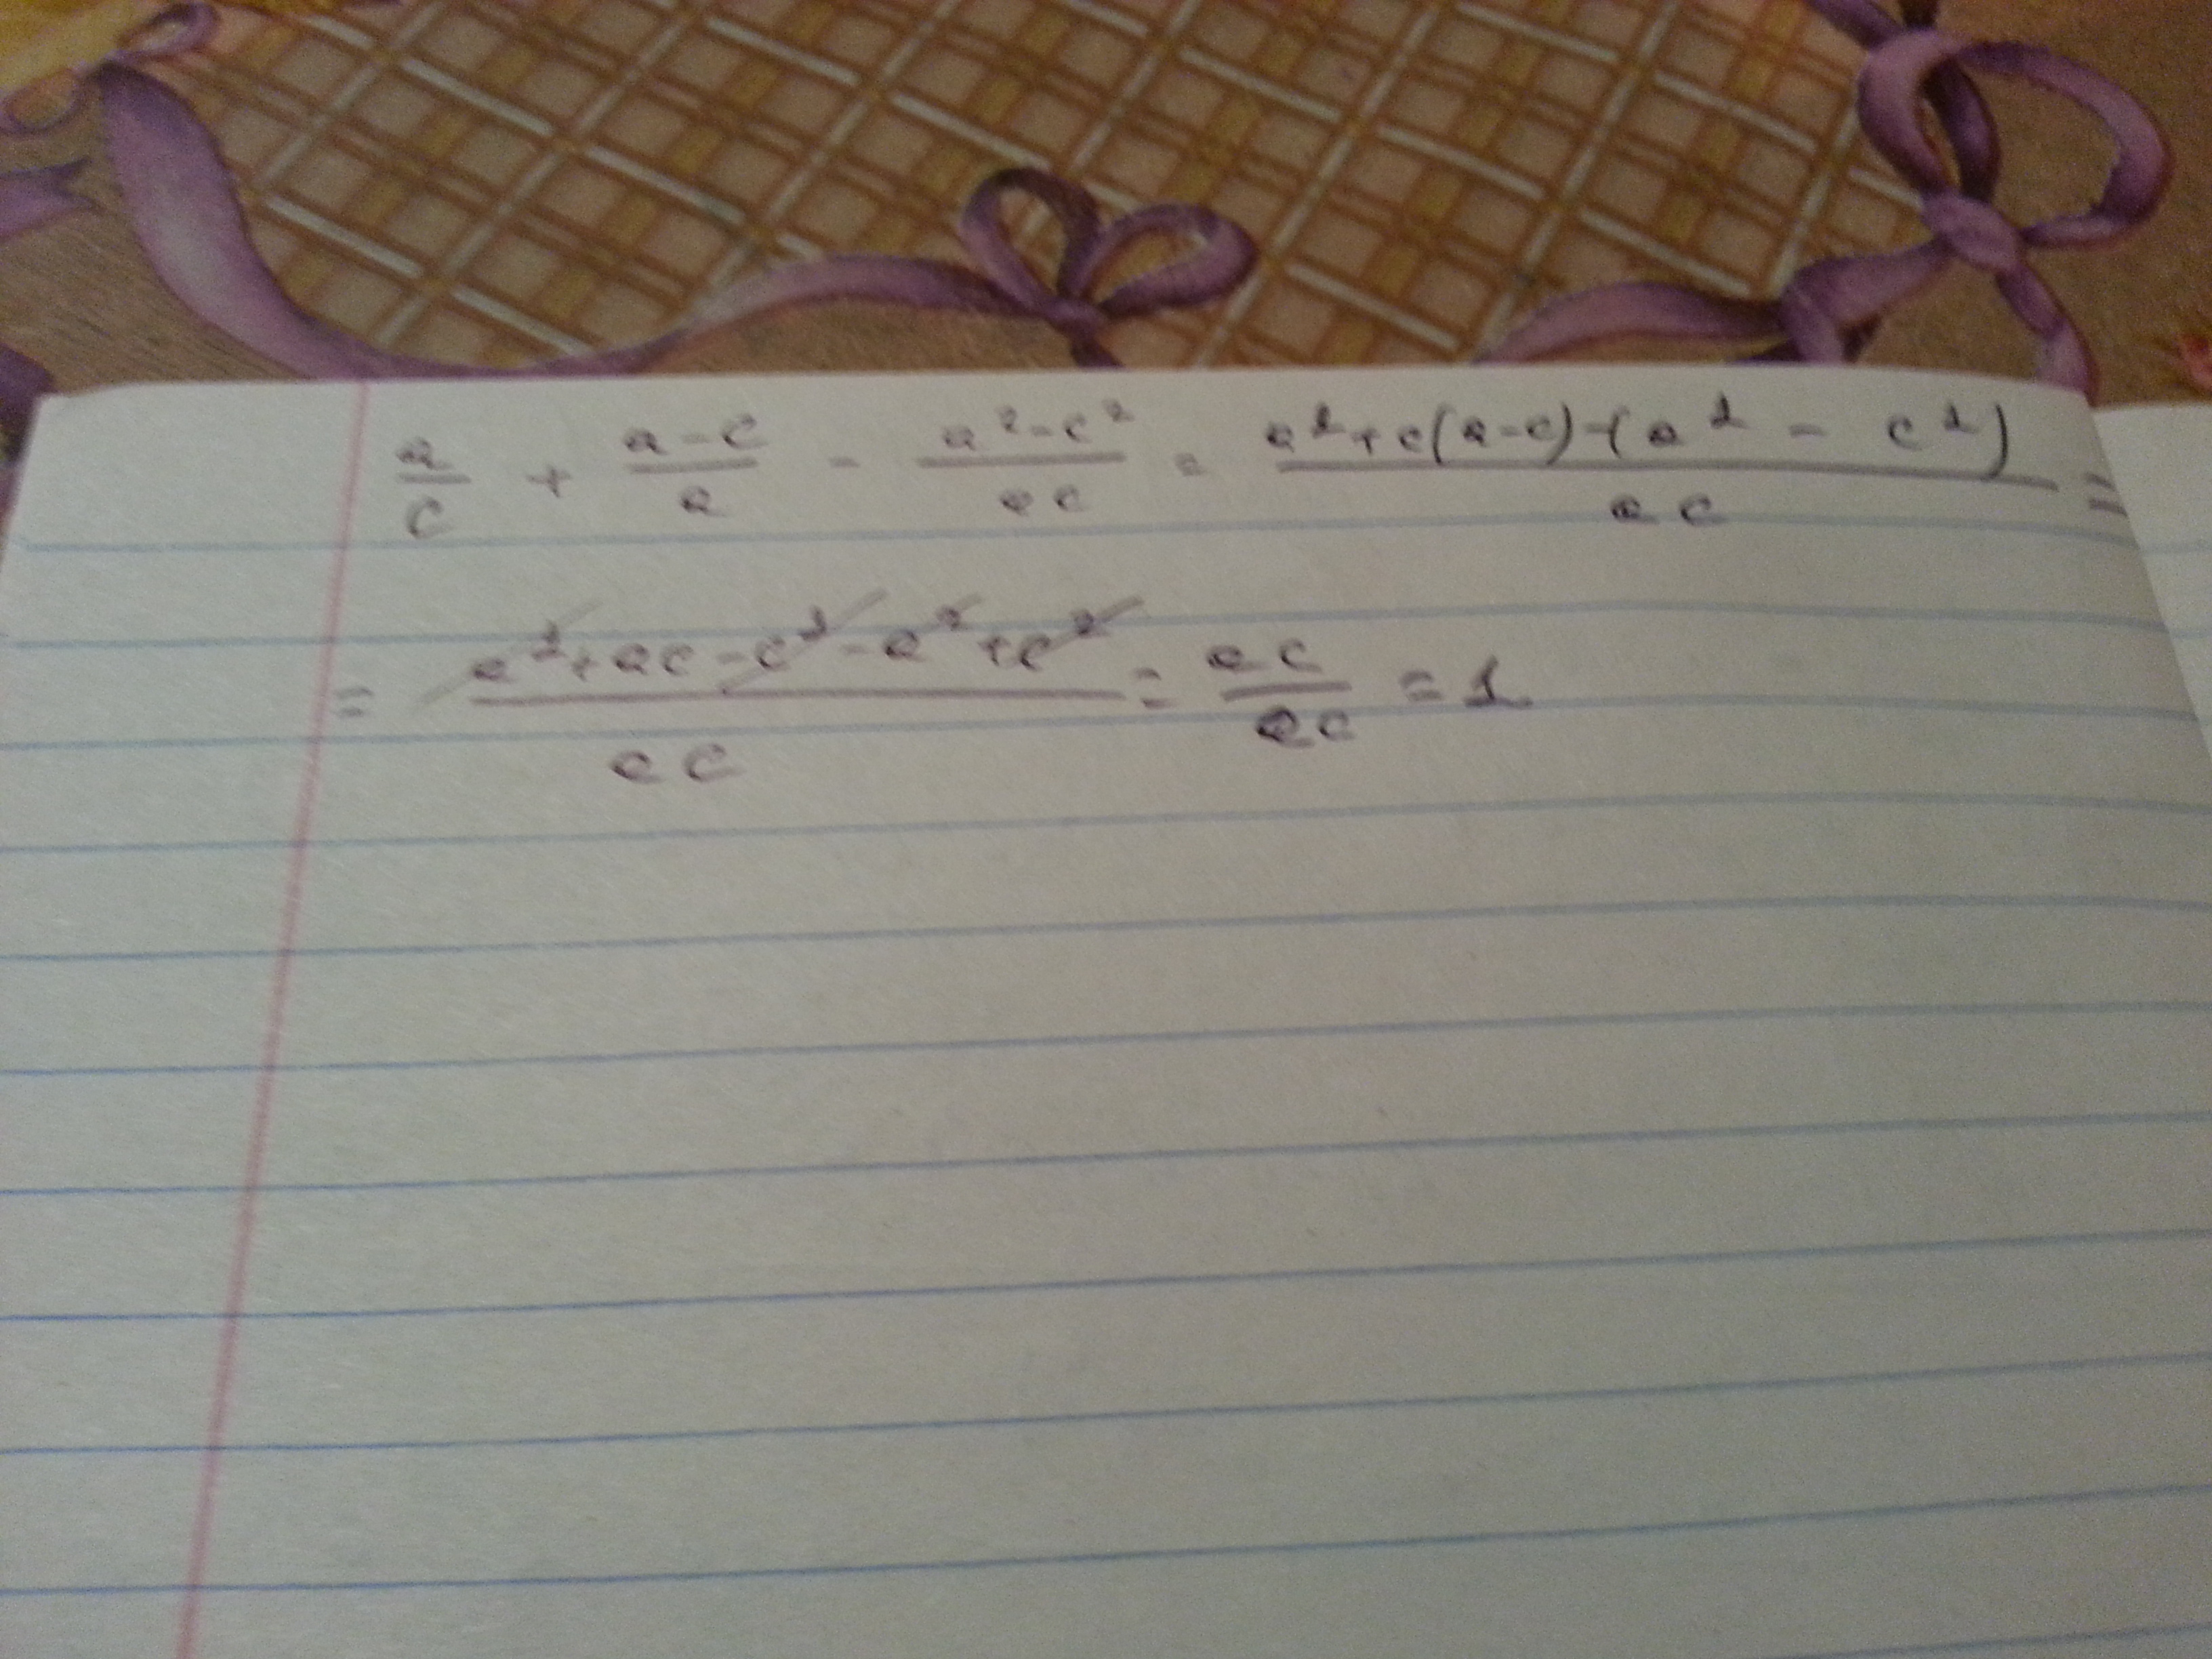 a/c + (a-c)/a - (a²-c²)/ac = (a²+c(a-c)-(a²-c²))/ac =
= (a²+ac-c²-a²+c²)/ac = ac/ac = 1